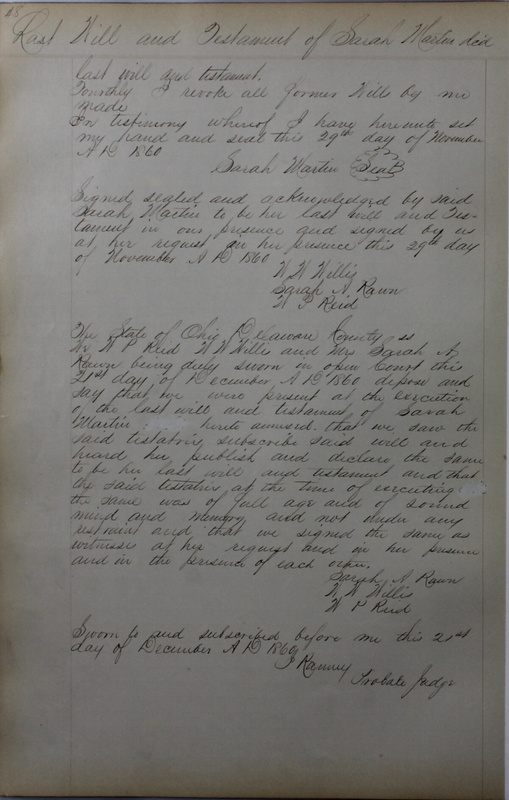 68
Last Will and Testament of Sarah Martin dec'd
last will and testament.
Fourthly I revoke all former Wills by me
made
In testimony whereof I have hereunto set
my hand and seal this 29th day of November
A D 1860
Sarah Martin Seal
Signed sealed and acknowledged by said
Sarah Martin to be her last will and Tes-
tament in our presence and signed by us
at her request in her presence this 29th day
of November A D 1860
W W Willis
Sarah A. Rawn
W P Reid
The State of Ohio Delaware County ss
We W P Reid W W Willis and Mrs Sarah A
Rawn being duly sworn in open Court this
21st day of December A D 1860 depose and
say that we were present at the execution
of the last will and testament of Sarah
Martin hereto annexed. that we saw the
said testatrix subscribe said will and
heard her publish and declare the same
to be her last will and testament and that
the said testatrix at the time of executing
the same was of full age and of sound
mind and memory and not under any
restraint and that we signed the same as
witnesses at her request and in her presence
and in the presence of each other.
Sarah A Rawn
W W Willis
W P Reid
Sworn to and subscribed before me this 21st
day of December A D 1860
Ranney
Probate Judge